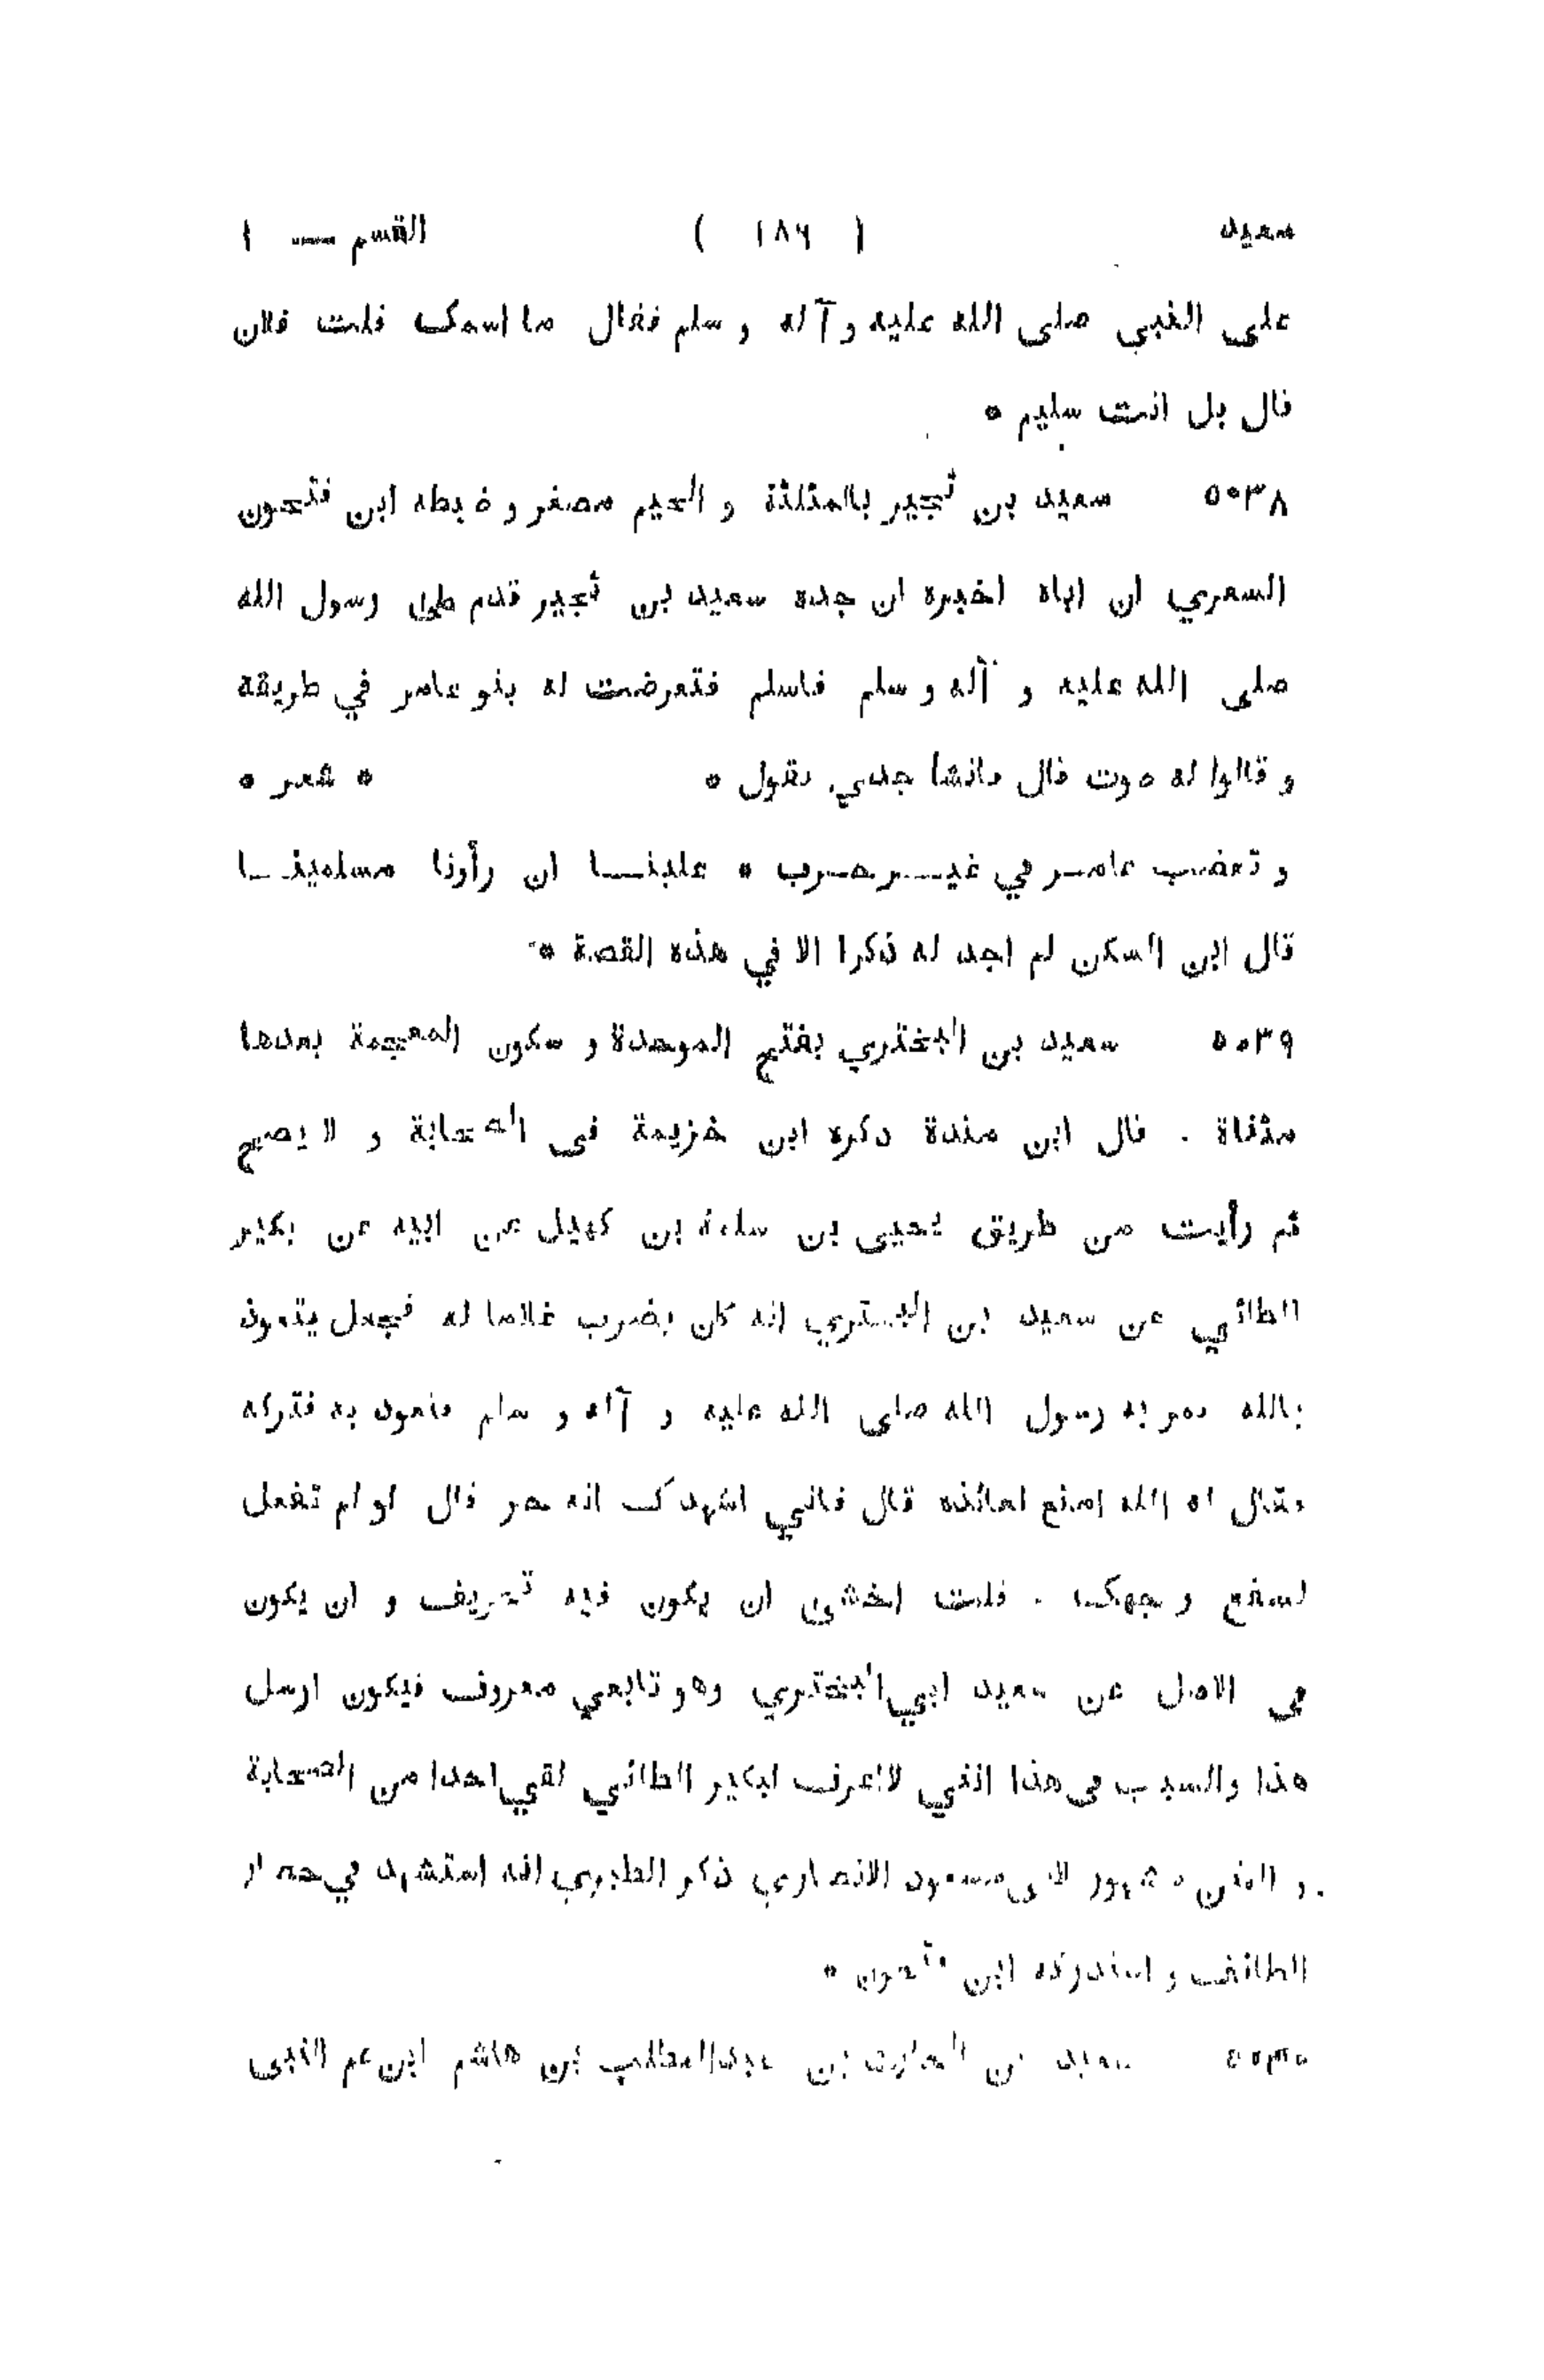 سعيد ( ١٨٩ ) القسم — ١
على النبي صلى الله عليه و آله و سلم فقال ما اسمك قلت فلان
قال بل انت سليم *
٥٠٣٨ سعيد بن ثجير بالمثلثة و الجيم مصغر و ضبطه ابن فتحون
السعري ان اباه اخبره ان جده سعيد بن ثجير قدم على رسول الله
صلى الله عليه و آله و سلم فاسلم فتعرضت له بنو عامر في طريقه
و قالوا له صوت قال فانشأ جدي يقول * * شعر *
و تغضب عامر في غير حرب * علينا ان رأونا مسلمينا
قال ابن السكن لم اجد له ذكرا الا في هذه القصة *
٥٠٣٩ سعيد بن البختري بفتح الموحدة و سكون المعجمة بعدها
مثناة . قال ابن مندة ذكره ابن خزيمة في الصحابة و لا يصح
ثم رأيت من طريق يحيى بن سلمة بن كهيل عن ابيه عن بكير
الطائي عن سعيد بن البختري انه كان يضرب غلاما له فجعل يتعوذ
بالله فمر به رسول الله صلى الله عليه و آله و سلم فتعوذ به فتركه
فقال له الله امنع لعائذه قال فاني اشهدك انه حر قال لو لم تفعل
لسفع وجهك . قلت اخشى ان يكون فيه تحريف و ان يكون
في الاصل عن سعيد ابي البختري وهو تابعي معروف فيكون ارسل
هذا والسبب في هذا انني لا اعرف لبكير الطائي لقي احدا من الصحابة
و المتن مشهور لابي مسعود الانصاري ذكر الطبري انه استشهد في حصار
الطائف و استدركه ابن فتحون *
سعيد بن الحارث بن عبد المطلب بن هاشم ابن عم النبي